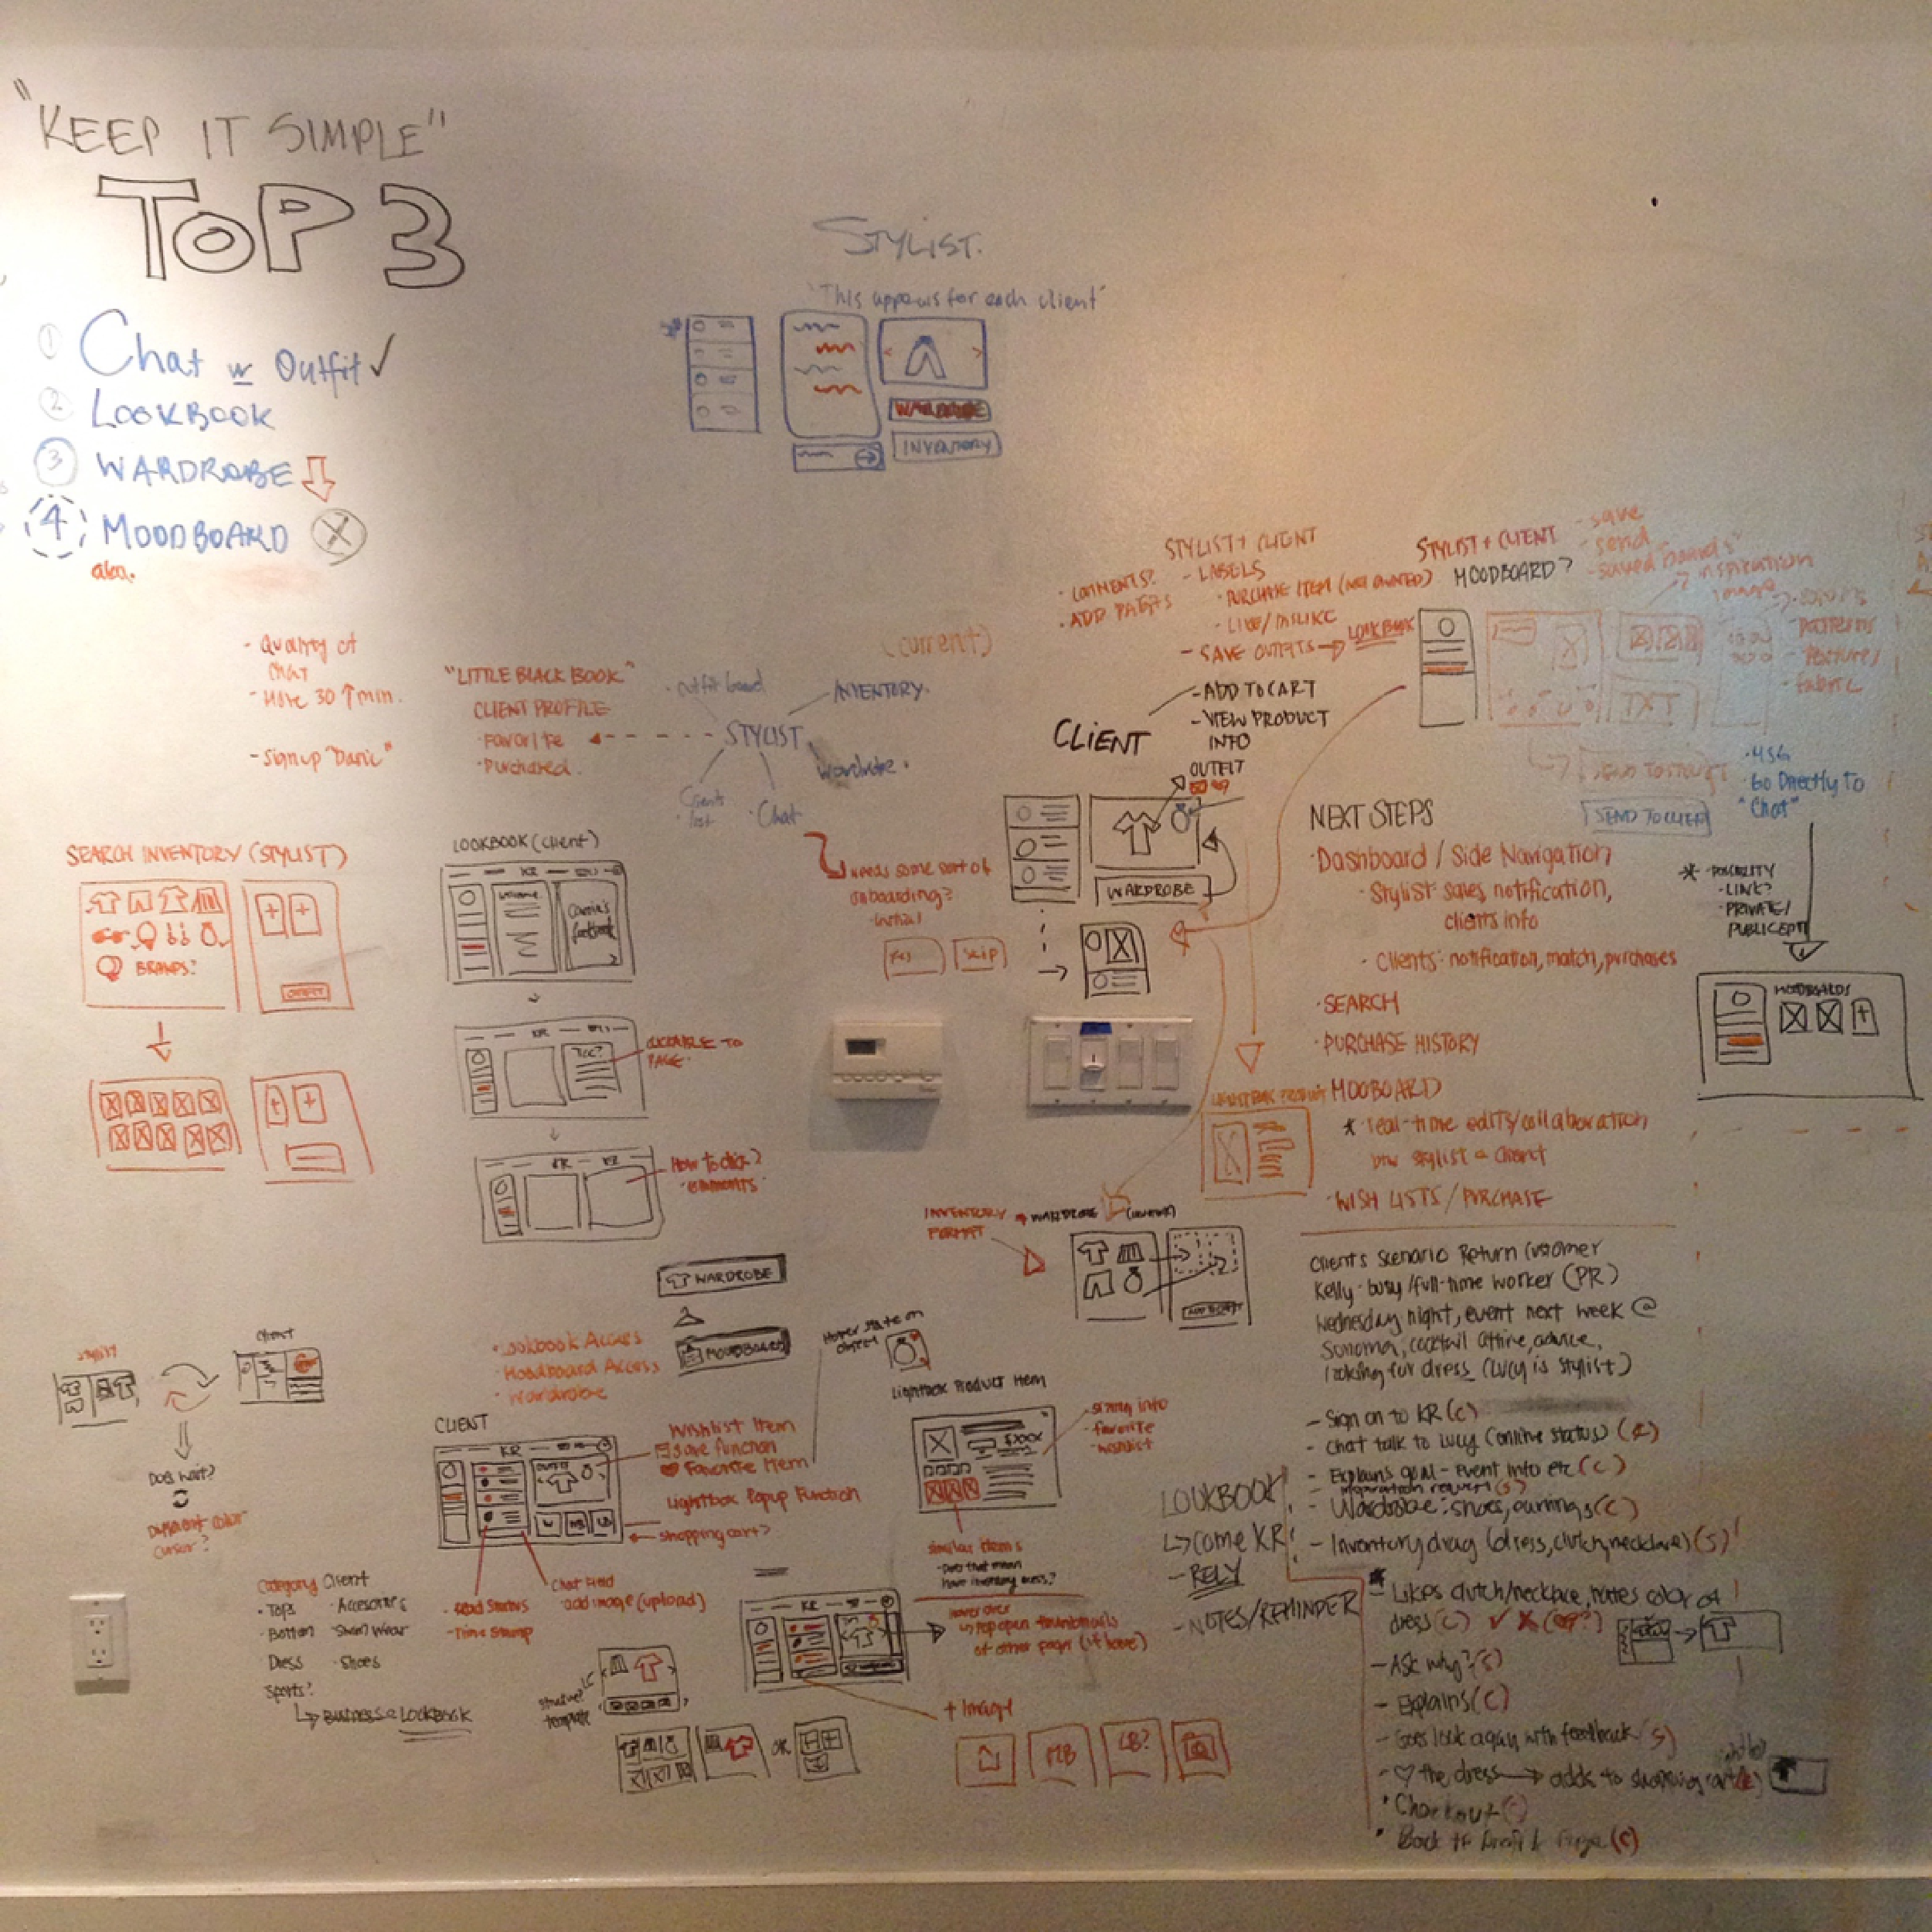 "KEEP IT SIMPLE"
TOP 3
1 Chat w Outfit ✓
2 LOOKBOOK
3 WARDROBE
4 MOODBOARD X
aka.
- Quality of
chat
- More 30 ↑ min.
- Signup
STYLIST.
"This appears for each client"
WARDROBE
INVENTORY
(current)
"LITTLE BLACK BOOK"
CLIENT PROFILE
· Favorite
· Purchased.
STYLIST
· Outfit board
INVENTORY.
Wardrobe.
Clients
list
· Chat
needs some sort of
onboarding?
initial
Yes
Skip
STYLIST + CLIENT
· COMMENTS?
- LABELS
· PURCHASE ITEM (NOT OWNED)
· LIKE/DISLIKE
- SAVE OUTFITS → LOOKBOOK
STYLIST + CLIENT
MOODBOARD?
- save
- send
- saved "boards"
inspiration
image
patterns
- texture/
fabric
TXT
SEND TO CLIENT
· MSG
· Go Directly To
"Chat"
CLIENT
- ADD TO CART
- VIEW PRODUCT
INFO
OUTFIT
WARDROBE
NEXT STEPS
· Dashboard / Side Navigation
- Stylist: sales notification,
clients info
· Clients: notification, match, purchases
· SEARCH
· PURCHASE HISTORY
MOODBOARD
* real-time edits/collaboration
btw stylist & client
· WISH LISTS / PURCHASE
- LINK?
- PRIVATE/
MOODBOARDS
SEARCH INVENTORY (STYLIST)
BRANDS?
OUTFIT
LOOKBOOK (client)
KR
welcome
Lookbook
KR
CLICKABLE TO
PAGE.
KR
How to click?
comments
INVENTORY
FORMAT
WARDROBE
WARDROBE
MOODBOARD
· Lookbook Access
· Moodboard Access
· Wardrobe
Hover state on
object
Lightbox Product Item
$XXX
- sizing info
- favorite
- wishlist
similar items
- Does that mean
have inventory access?
CLIENT
KR
OUTFIT
Wishlist Item
save function
Favorite Item
Lightbox Popup Function
shopping cart?
- Read Status
- Time Stamp
Chat Field
add image (upload)
stylist
client
Does wait?
Different color
cursor?
Category Client
· Tops
· Accessories
· Bottom
· Swim Wear
Dress
· Shoes
Sports?
LOOKBOOK
template
OR
KR
hover over
popopen thumbnails
of other pages (if have)
+ Image
MB
LB?
LOOKBOOK
↳ come KR
- RELY
- NOTES/REMINDER
Clients Scenario Return Customer
Kelly - busy/full-time worker (PR)
Wednesday night, event next week @
Sonoma, cocktail attire, advice,
looking for dress (Lucy is stylist)
- Sign on to KR (C)
- Chat talk to Lucy (online status)
- Explains goal - Event info etc (C)
- Wardrobe: shoes, earrings (C)
- Inventory drag (dress, clutch, necklace) (S)
- Likes clutch/necklace, hates color of
dress (C) ✓ X
- Ask why? (S)
- Explains (C)
- Goes look again with feedback (S)
- ♡ the dress → adds to shopping cart
· Checkout